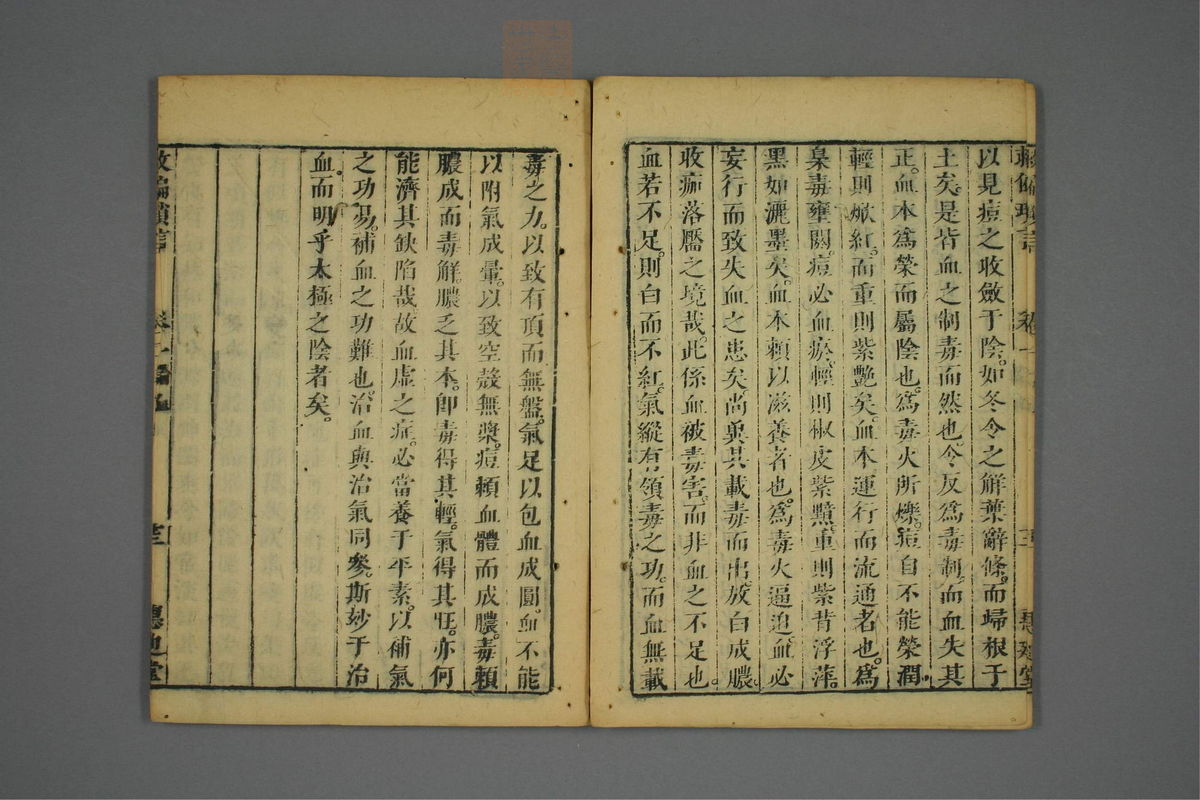 以見痘之收斂于陰。如冬令之解葉辭條。而歸根于
土矣。是皆血之制毒而然也。今反爲毒制。而血失其
正。血本爲榮而屬陰也。爲毒火所爍。痘自不能榮潤。
輕則焮紅。而重則紫艷矣血本運行而流通者也。爲
梟毒壅閼。痘必血瘀。輕則椒皮紫黯。重則紫背浮萍。
黑如灑墨矣。血本賴以滋養者也。爲毒火逼迫。血必
妄行而致失血之患矣。尚奚其載毒而出。放白成膿。
收痂落靨之境哉。此係血被毒害。而非血之不足也。
血若不足。則白而不紅。氣縱有領毒之功。而血無載
毒之力。以致有頂而無盤。氣足以包血成圓。血不能
以附氣成暈。以致空殼無漿。痘賴血體而成膿。毒賴
膿成而毒解。膿乏其本。卽毒得其輕。氣得其旺。亦何
能濟其缺陷哉。故血虛之症。必當養于平素。以補氣
之功易。補血之功難也。治血與治氣同參。斯妙于治
血而明乎太極之陰者矣。